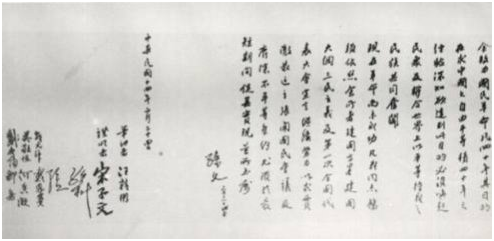 余致力國民革命凡四十年其目的
在求中國之自由平等積四十年之
經驗深知欲達到此目的必須喚起
民衆及聯合世界上以平等待我之
民族共同奮鬥
現在革命尚未成功凡我同志務
須依照余所著建國方略建國
大綱三民主義及第一次全國代
表大會宣言繼續努力以求貫
澈最近主張開國民會議及
廢除不平等條約尤須於最
短期間促其實現是所至囑
孫文
中華民國十四年二月二十四日
筆記者 汪精衛
證明者 宋子文
吳敬恆 何香凝